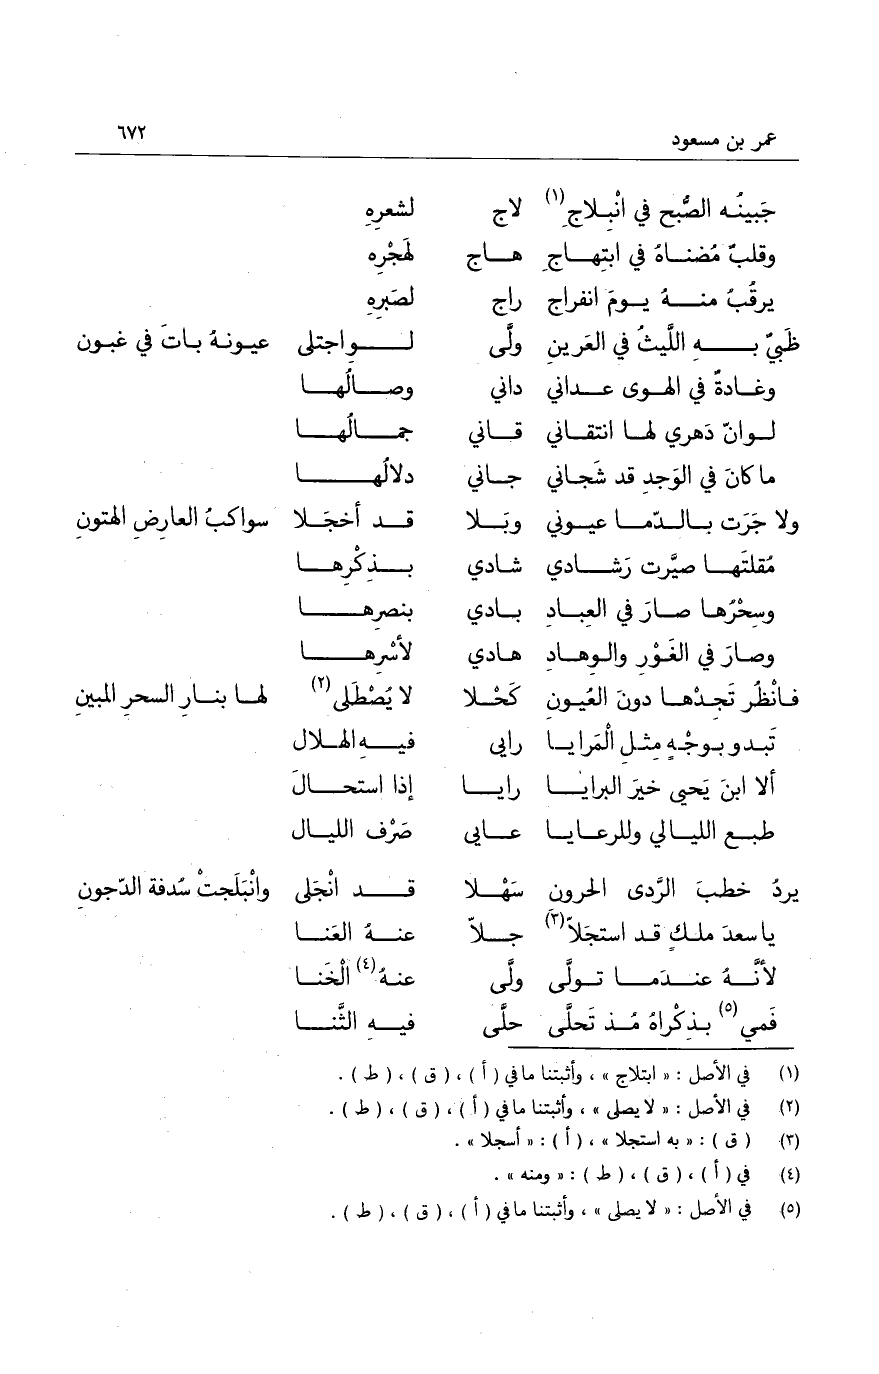 عمر بن مسعود ٦٧٢
جَبينُه الصُّبح في انْبِلاجِ(١) لاج لشعرِهِ
وقلبُ مُضناهُ في ابتهاجِ هاج لهَجْرِه
يرقُبُ منهُ يومَ انفراج راج لصَبرِهِ
ظَبيٌ بهِ اللَّيثُ في العَرينِ ولَّى لواجتلى عيونهُ باتَ في غبون
وغادةٌ في الهوى عداني داني وصالُها
لوانّ دَهري لها انتقاني قاني جمالُها
ما كانَ في الوَجدِ قد شَجاني جاني دلالُها
ولا جَرَت بالدّما عيوني وبَلا قد أخجَلا سواكبُ العارضِ الهتونِ
مُقلتَها صيَّرت رَشادي شادي بذِكْرِها
وسِحْرُها صارَ في العبادِ بادي بنصرِها
وصارَ في الغَوْرِ والوهادِ هادي لأسْرِها
فانْظُر تَجدْها دونَ العُيونِ كَحْلا لا يُصْطَلى(٢) لها بنارِ السحرِ المبينِ
تَبدو بوجْهٍ مثلِ الْمَرايا رايي فيهِ الهلال
ألا ابنَ يَحيى خيرَ البرايا رايا إذا استحالَ
طبع الليالي وللرعايا عايى صَرْف الليال
يردُ خطبَ الرَّدى الحرون سَهْلا قد انْجَلى وانْبَلَجتْ سُدفة الدّجون
ياسعدَ ملكٍ قد استجَلاّ(٣) جلاّ عنهُ العَنا
لأنَّهُ عندَما تولَّى ولَّى عنهُ(٤) الْخَنا
فَمي(٥) بذِكْراهُ مُذ تَحلَّى حلَّى فيهِ الثَّنا
(١) في الأصل : « ابتلاج » ، وأثبتنا ما في ( أ ) ، ( ق ) ، ( ط ) .
(٢) في الأصل : « لا يصلى » ، وأثبتنا ما في ( أ ) ، ( ق ) ، ( ط ) .
(٣) ( ق ) : « به استجلا » ، ( أ ) : « أسجلا » .
(٤) في ( أ ) ، ( ق ) ، ( ط ) : « ومنه » .
(٥) في الأصل : « لا يصلى » ، وأثبتنا ما في ( أ ) ، ( ق ) ، ( ط ) .